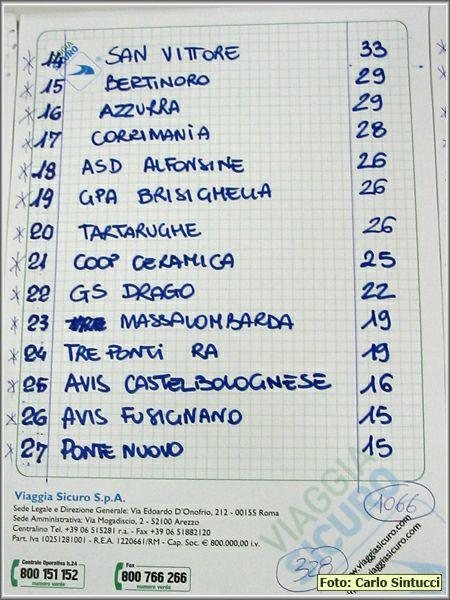 VIAGGIA
SICURO
* 14 SAN VITTORE 33
* 15 BERTINORO 29
* 16 AZZURRA 29
* 17 CORRIMANIA 28
* 18 ASD ALFONSINE 26
* 19 GPA BRISIGHELLA 26
* 20 TARTARUGHE 26
* 21 COOP CERAMICA 25
* 22 GS DRAGO 22
* 23 MASSALOMBARDA 19
* 24 TRE PONTI RA 19
* 25 AVIS CASTELBOLOGNESE 16
* 26 AVIS FUSIGNANO 15
* 27 PONTE NUOVO 15
VIAGGIA
SICURO
www.viaggiasicuro.com
1066
328
Viaggia Sicuro S.p.A.
Sede Legale e Direzione Generale: Via Edoardo D'Onofrio, 212 - 00155 Roma
Sede Amministrativa: Via Mogadiscio, 2 - 52100 Arezzo
Centralino Tel. +39 06 515281 r.a. - Fax +39 06 51882120
Part. Iva 10251281001 - R.E.A. 1220661/RM - Cap. Soc. € 800.000,00 i.v.
Centrale Operativa h.24
800 151 152
numero verde
Fax
800 766 266
numero verde
Foto: Carlo Sintucci